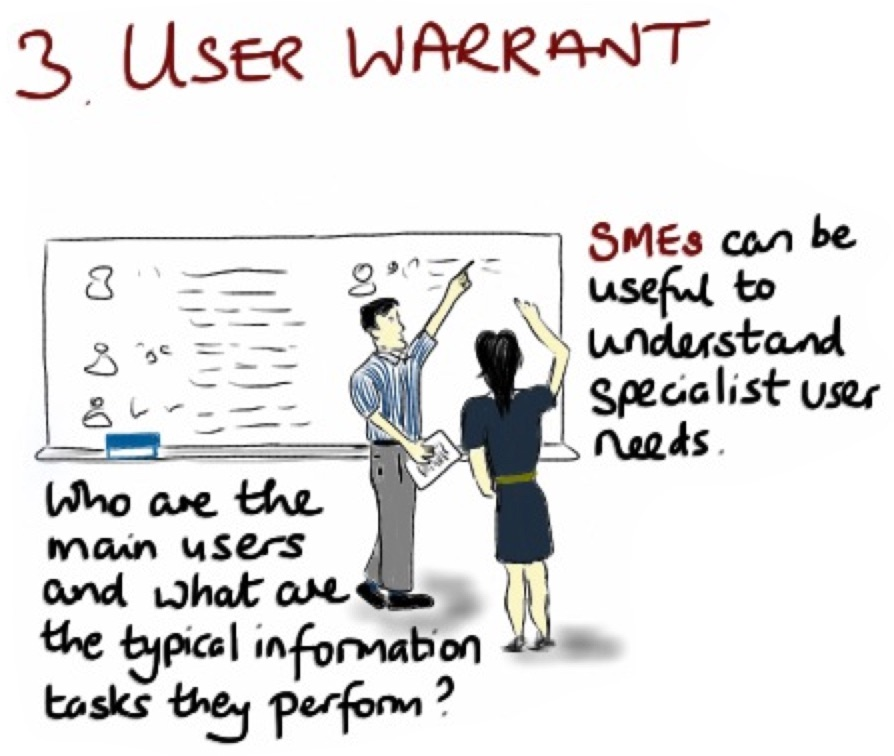 3. USER WARRANT
SMEs can be
useful to
understand
specialist user
needs.
Who are the
main users
and what are
the typical information
tasks they perform?